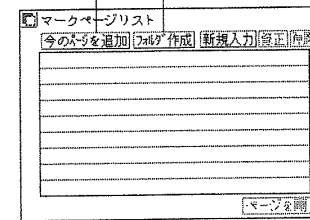 マークページリスト
今のページを追加 フォルダ作成 新規入力 修正
ページを開